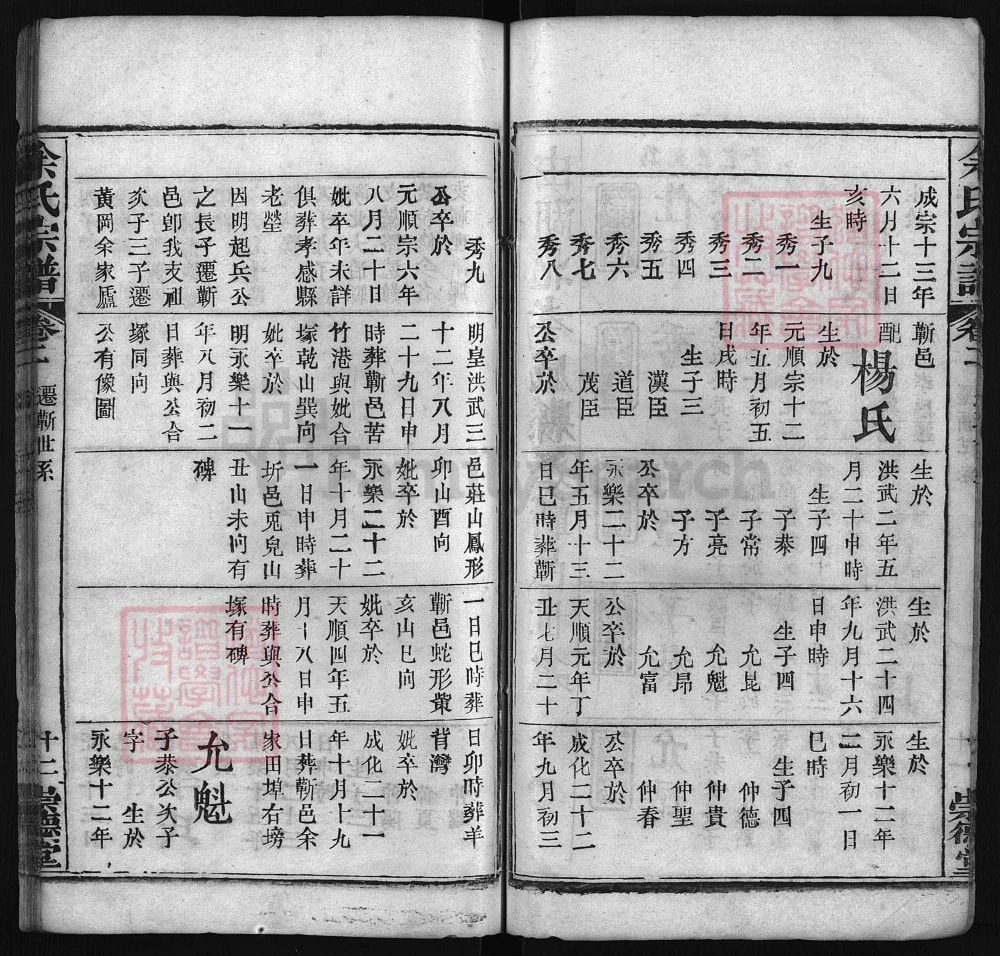 余氏宗譜
卷二
崇德堂
成宗十三年
六月十二日
亥時
生子九
秀一
秀二
秀三
秀四
秀五
秀六
秀七
秀八
蘄邑
配楊氏
生於
元順宗十二
年五月初五
日戌時
生子三
漢臣
道臣
茂臣
公卒於
生於
洪武二年五
月二十申時
生子四
子泰
子常
子亮
子方
公卒於
永樂二十二
年五月十三
日巳時葬蘄
生於
洪武二十四
年九月十六
日申時
生子四
允昆
允魁
允昂
允富
公卒於
天順元年丁
丑七月二十
生於
永樂十二年
二月初一日
巳時
生子四
仲德
仲貴
仲聖
仲春
公卒於
成化二十二
年九月初三
秀九
公卒於
元順宗六年
八月二十日
妣卒年未詳
俱葬孝感縣
老塋
因明起兵公
之長子遷蘄
邑卽我支祖
次子三子遷
黃岡余家廬
明皇洪武三
十二年八月
二十九日申
時葬蘄邑苦
竹港與妣合
塚乾山巽向
妣卒於
明永樂十一
年八月初二
日葬與公合
塚同向
公有像圖
邑莊山鳳形
卯山酉向
妣卒於
永樂二十二
年十月二十
一日申時葬
圻邑兎兒山
丑山未向有
碑
一日巳時葬
蘄邑蛇形嘴
亥山巳向
妣卒於
天順四年五
月十八日申
時葬與公合
塚有碑
日卯時葬羊
背灣
妣卒於
成化二十一
年十月十九
日葬蘄邑余
家田埠右塝
允魁
子泰公次子
字 生於
永樂十二年
余氏宗譜
卷二
遷蘄世系
十二
崇德堂